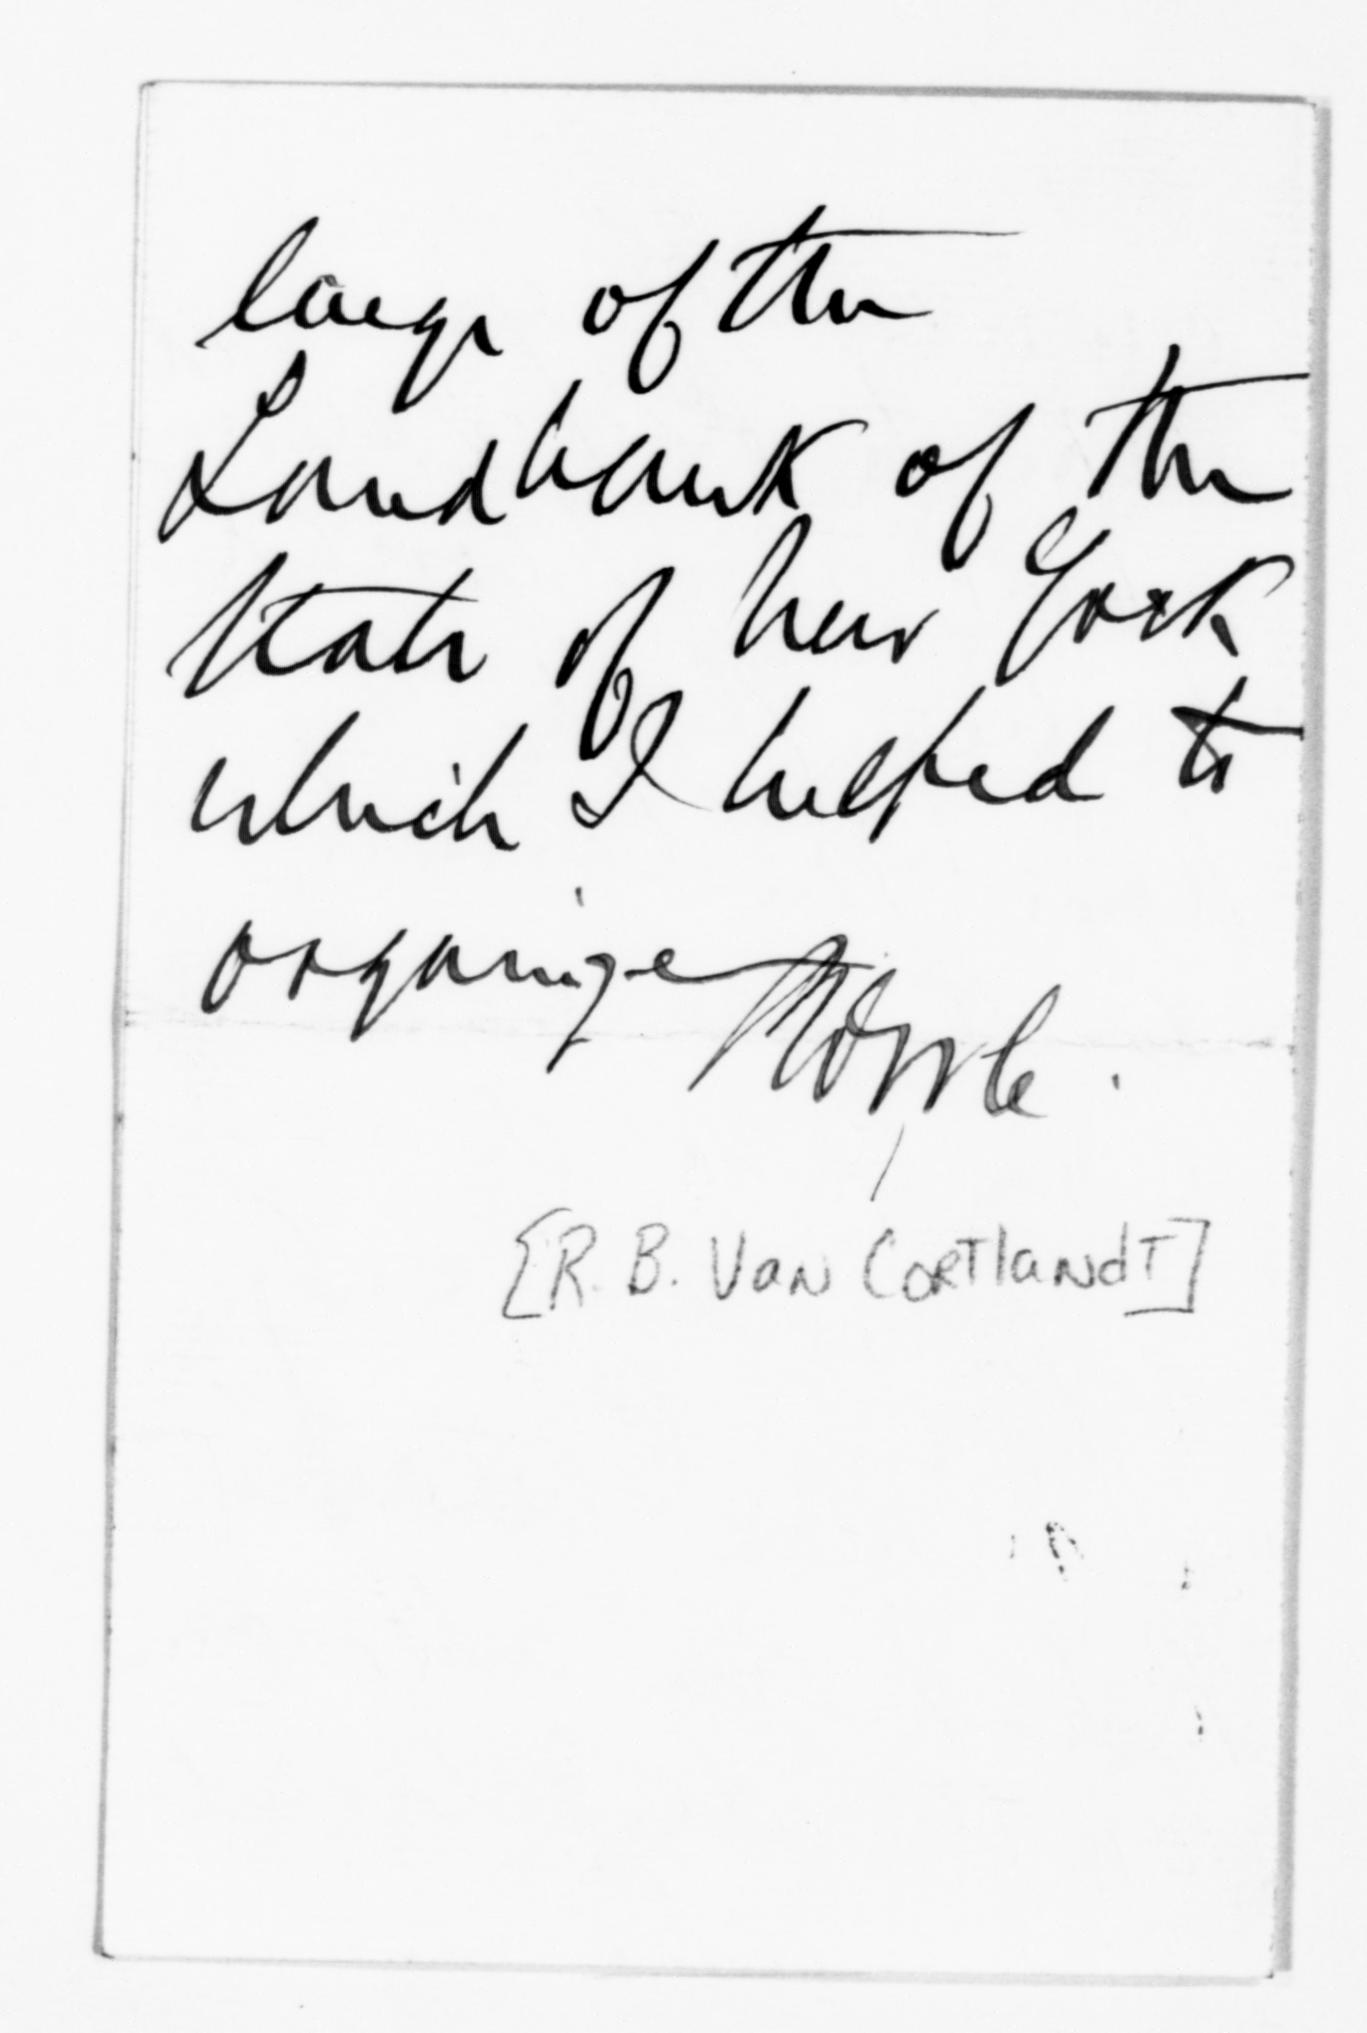 large of the
Landbank of the
State of New York
which I helped to
organize
[R. B. Van Cortlandt]